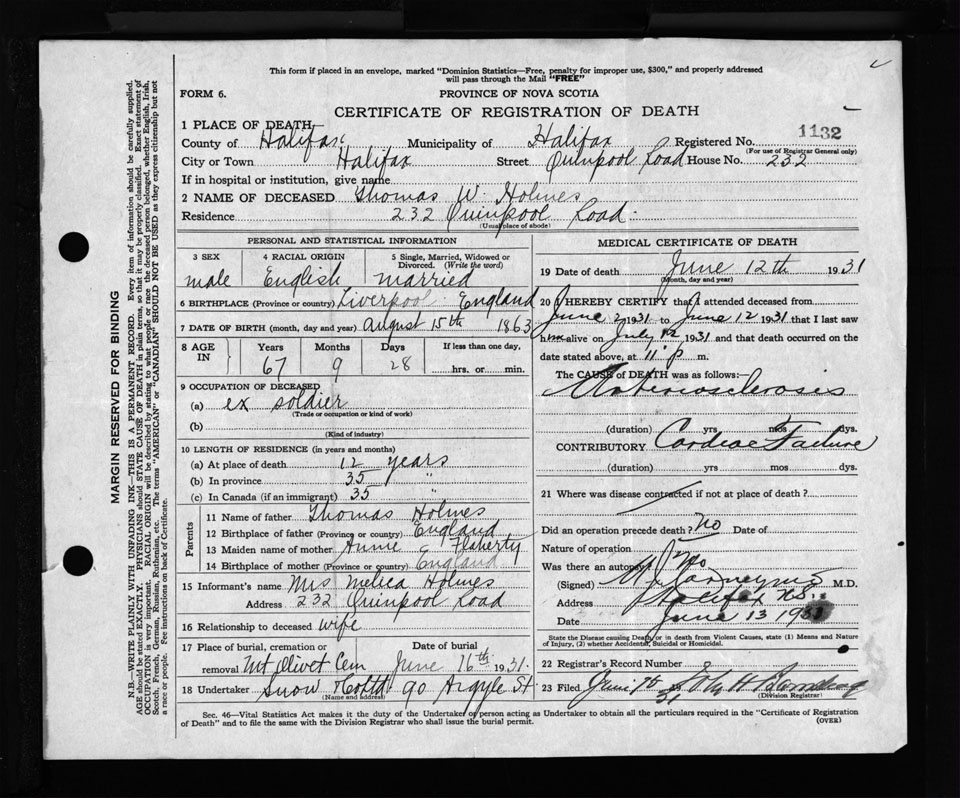 This form if placed in an envelope, marked "Dominion Statistics—Free, penalty for improper use, $300," and properly addressed
will pass through the Mail "FREE"
FORM 6.
PROVINCE OF NOVA SCOTIA
CERTIFICATE OF REGISTRATION OF DEATH
1132
1 PLACE OF DEATH
County of Halifax Municipality of Halifax Registered No.
(For use of Registrar General only)
City or Town Halifax Street Quinpool Road House No. 232
If in hospital or institution, give name
2 NAME OF DECEASED Thomas W. Holmes
Residence 232 Quinpool Road.
(Usual place of abode)
PERSONAL AND STATISTICAL INFORMATION
3 SEX male
4 RACIAL ORIGIN English
5 Single, Married, Widowed or Divorced. (Write the word) married
6 BIRTHPLACE (Province or country) Liverpool England
7 DATE OF BIRTH (month, day and year) August 15th 1863
8 AGE IN Years 67 Months 9 Days 28 If less than one day, hrs. or min.
9 OCCUPATION OF DECEASED
(a) ex soldier
(Trade or occupation or kind of work)
(b)
(Kind of industry)
10 LENGTH OF RESIDENCE (in years and months)
(a) At place of death 12 years
(b) In province 35 "
(c) In Canada (if an immigrant) 35 "
Parents
11 Name of father Thomas Holmes
12 Birthplace of father (Province or country) England
13 Maiden name of mother Annie E Flaherty
14 Birthplace of mother (Province or country) England
15 Informant's name Mrs Melica Holmes
Address 232 Quinpool Road
16 Relationship to deceased wife
17 Place of burial, cremation or removal Mt Olivet Cem Date of burial June 16th 1931.
18 Undertaker Snow 90 Argyle St
(Name and address)
MEDICAL CERTIFICATE OF DEATH
19 Date of death June 12th 1931
(Month, day and year)
20 I HEREBY CERTIFY that I attended deceased from
June 2 1931 to June 12 1931 that I last saw
him alive on July 12 1931 and that death occurred on the
date stated above, at 11 p m.
The CAUSE of DEATH was as follows:
Arteriosclerosis
(duration) yrs mos dys.
CONTRIBUTORY Cardiac Failure
(duration) yrs mos dys.
21 Where was disease contracted if not at place of death?
Did an operation precede death? No Date of
Nature of operation
Was there an autopsy? No
(Signed) M.D.
Address Halifax, N.S.
Date June 13 1931
State the Disease causing Death, or in death from Violent Causes, state (1) Means and Nature
of Injury, (2) whether Accidental, Suicidal or Homicidal.
22 Registrar's Record Number
23 Filed June 15 31 John H
(Division Registrar)
Sec. 46—Vital Statistics Act makes it the duty of the Undertaker or person acting as Undertaker to obtain all the particulars required in the "Certificate of Registration
of Death" and to file the same with the Division Registrar who shall issue the burial permit.
(OVER)
MARGIN RESERVED FOR BINDING
N.B.—WRITE PLAINLY WITH UNFADING INK—THIS IS A PERMANENT RECORD. Every item of information should be carefully supplied.
AGE should be stated EXACTLY. PHYSICIANS should STATE CAUSE OF DEATH in plain terms, so that it may be properly classified. Exact statement of
OCCUPATION is very important. RACIAL ORIGIN will be described by stating to what people or race the deceased person belonged, whether English, Irish,
Scotch, French, German, Russian, Ruthenian, etc. The terms "AMERICAN" or "CANADIAN" SHOULD NOT BE USED as they express citizenship but not
a race or people. Fee instructions on back of Certificate.